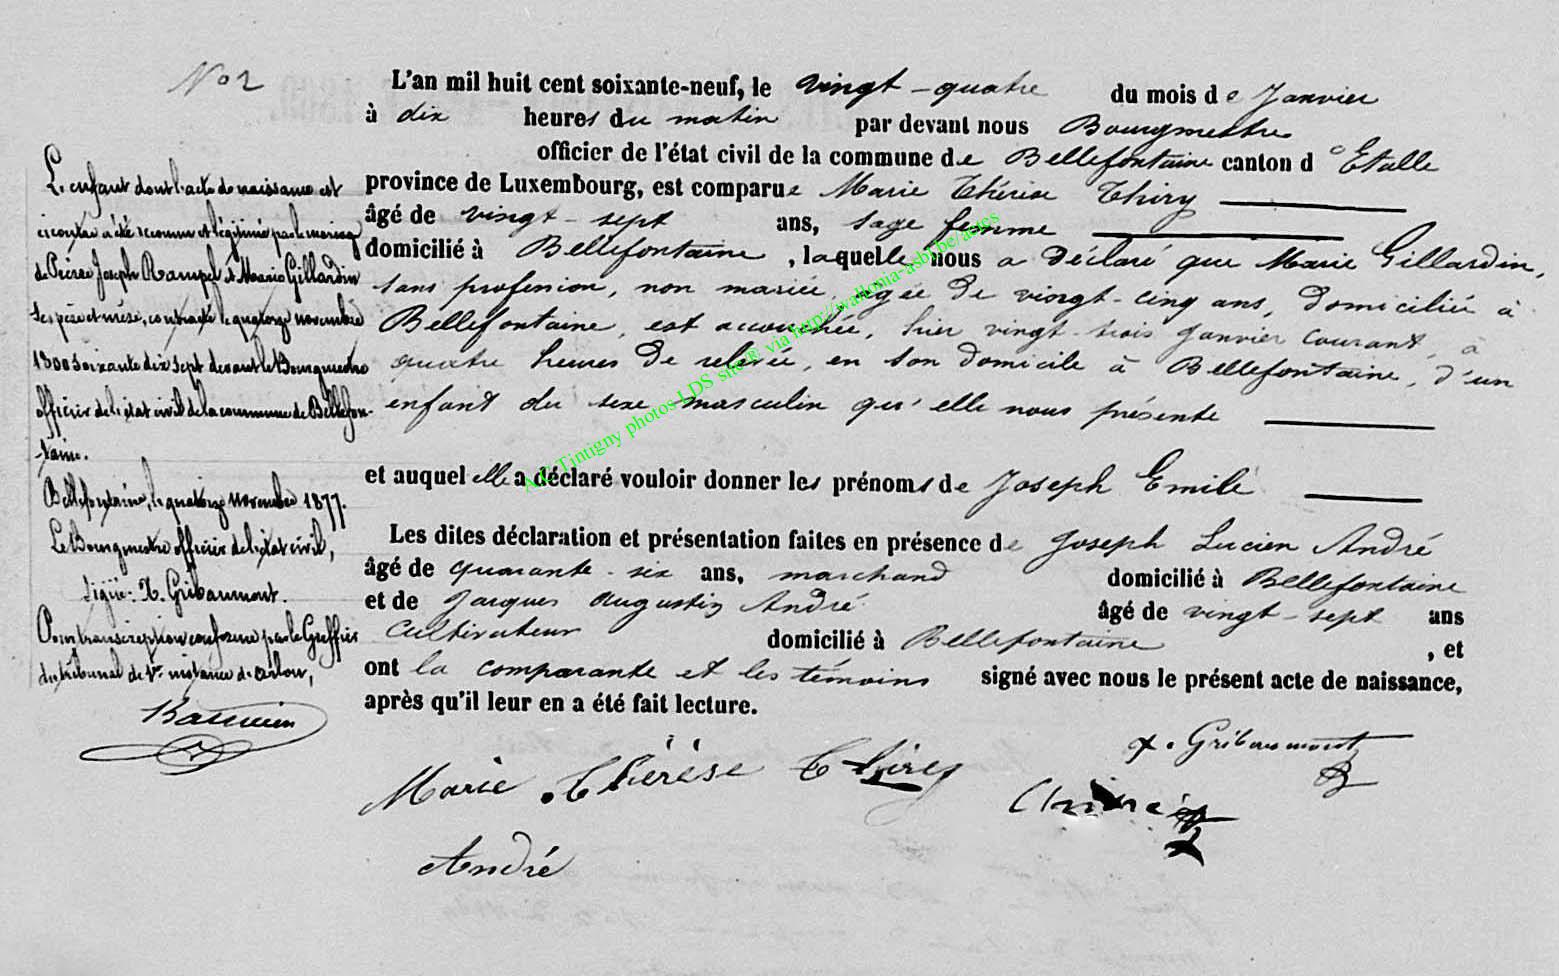 N° 2
L'an mil huit cent soixante-neuf, le vingt-quatre du mois de Janvier
à dix heures du matin par devant nous Bourgmestre
officier de l'état civil de la commune de Bellefontaine canton d'Etalle
province de Luxembourg, est comparue Marie Thérèse Thiry
âgé de vingt-sept ans, sage femme
domicilié à Bellefontaine, laquelle nous a déclaré que Marie Gillardin,
sans profession, non mariée, agée de vingt-cinq ans, domiciliée à
Bellefontaine, est accouchée, hier vingt-trois Janvier courant, à
quatre heures de relevée, en son domicile à Bellefontaine, d'un
enfant du sexe masculin qu'elle nous présente
et auquel elle a déclaré vouloir donner les prénoms de Joseph Emile
Les dites déclaration et présentation faites en présence de Joseph Lucien André
âgé de quarante-six ans, marchand domicilié à Bellefontaine
et de Jacques Augustin André âgé de vingt-sept ans
Cultivateur domicilié à Bellefontaine, et
ont la comparante et les témoins signé avec nous le présent acte de naissance,
après qu'il leur en a été fait lecture.
Marie Thérèse Thirey
X. Gribaumont
André
André
L'enfant dont l'acte de naissance est
ci contre a été reconnu et légitimé par le mariage
de Pierre Joseph Rampel et Marie Gillardin
ses père et mère, contracté le quatorze novembre
1800 soixante dix sept devant le Bourgmestre
officier de l'état civil de la commune de Bellefon-
taine.
Bellefontaine, le quatorze novembre 1877.
Le Bourgmestre officier de l'état civil,
signé: X. Gribaumont.
Pour transcription conforme par le Greffier
du tribunal de 1re instance d'Arlon,
A.E Tintigny photos LDS site® via http://wallonia-asbl.be/actes